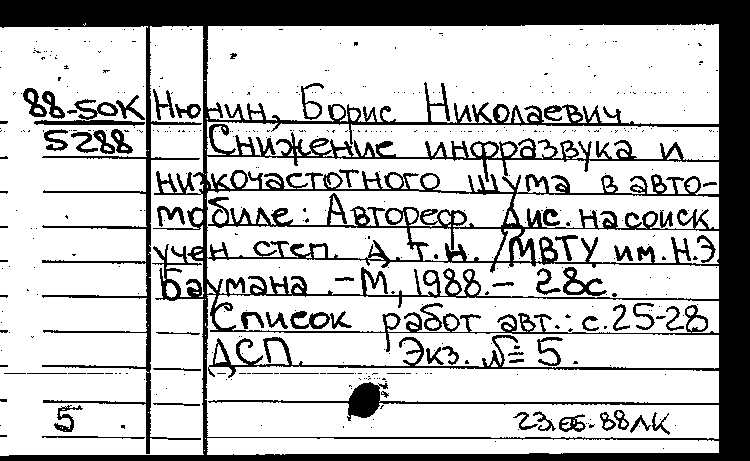 88-50К Нюнин, Борис Николаевич.
5288 Снижение инфразвука и
низкочастотного шума в авто-
мобиле: Автореф. Дис. на соиск.
учен. степ. д.т.н. /МВТУ им. Н.Э.
Баумана. - М., 1988. - 28с.
Список работ авт.: с. 25-28.
ДСП. Экз. № 5.
5 23.06.88 ЛК